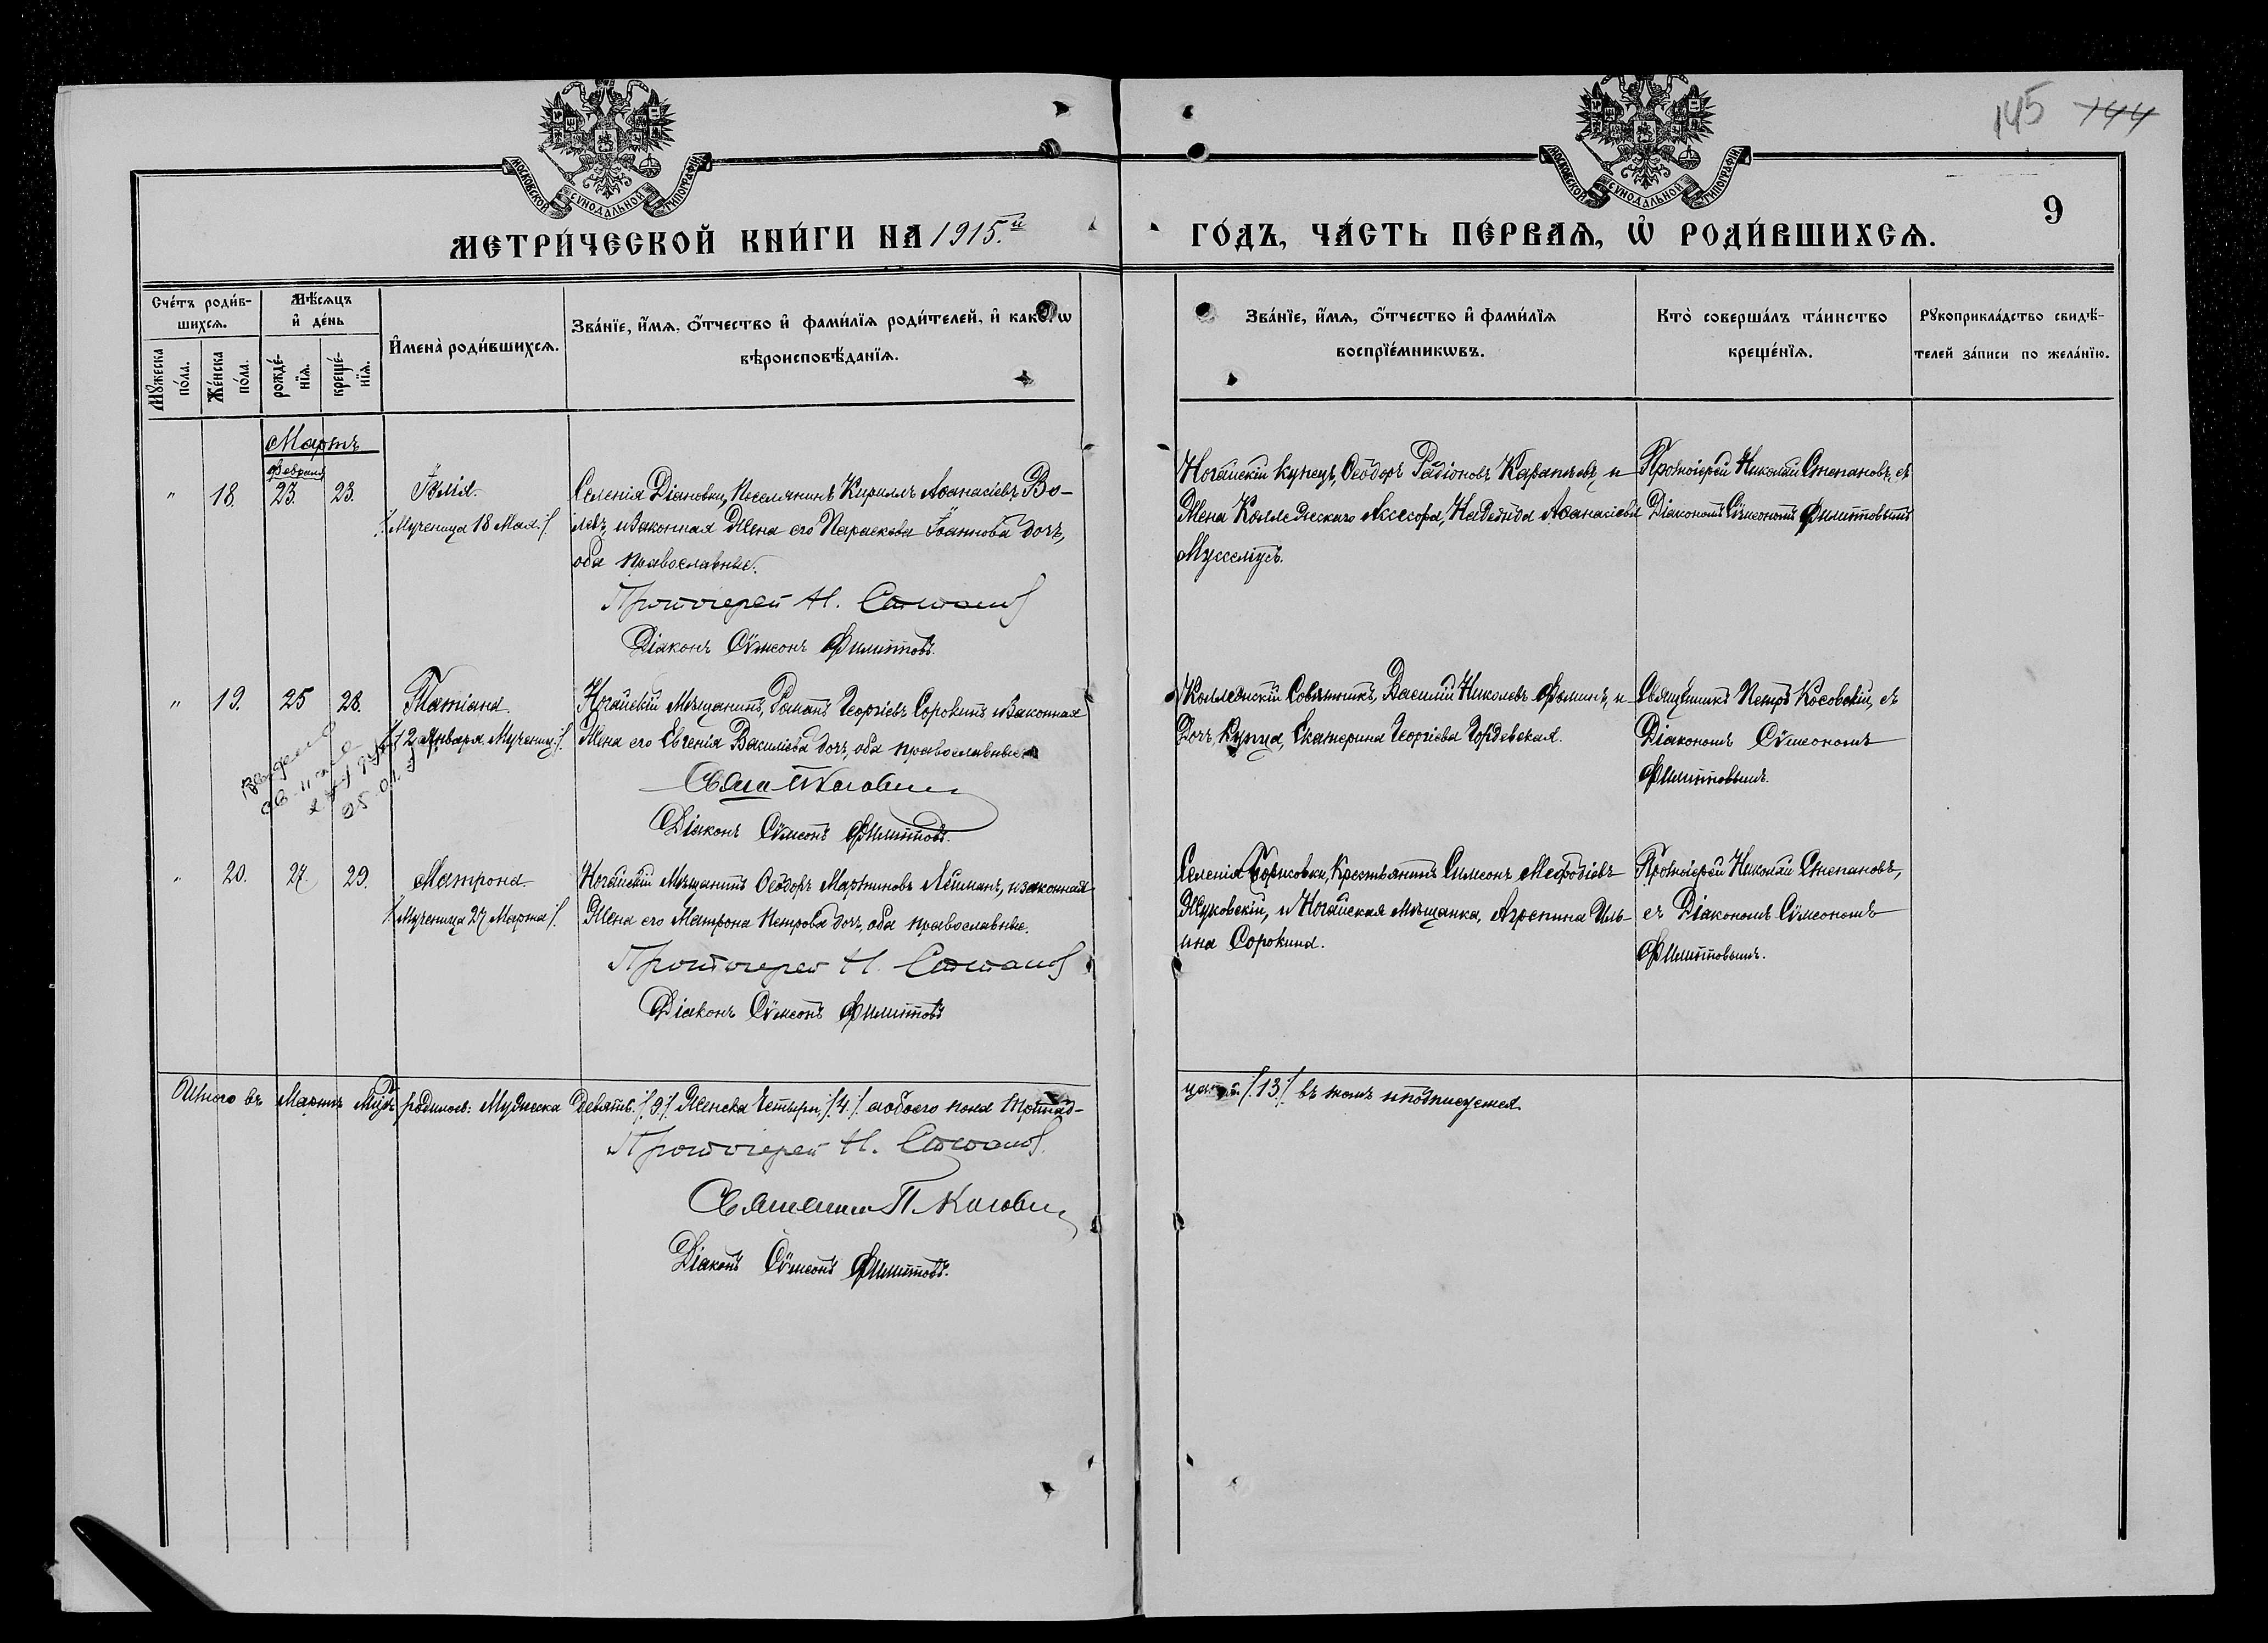 145 144
МОСКОВСКОЙ СѴНОДАЛЬНОЙ ТИПОГРАФІИ
МОСКОВСКОЙ СѴНОДАЛЬНОЙ ТИПОГРАФІИ
9
МЕТРИ́ЧЕСКОЙ КНИ́ГИ НА 1915.й
ГО́ДЪ, ЧА́СТЬ ПЕ́РВАѦ, Ѡ҆ РОДИ́ВШИХСѦ.
Сче́тъ роди́в-
шихсѧ.
Мꙋ́жеска по́ла.
Же́нска по́ла.
Мѣ́сѧцъ
и҆ де́нь
рожде́-
нїѧ.
креще́-
нїѧ.
И҆мена̀ роди́вшихсѧ.
Зва́нїе, и҆́мѧ, ѻ҆́тчество и҆ фами́лїѧ роди́телей, и҆ како́гѡ
вѣроисповѣ́данїѧ.
Зва́нїе, и҆́мѧ, ѻ҆́тчество и҆ фами́лїѧ
воспрїе́мникѡвъ.
Кто̀ соверша́лъ та́инство
креще́нїѧ.
Рꙋкоприкла́дство свидѣ́-
телей за́писи по жела́нїю.
Мартъ
Февраля
" 18. 23. 23. Іѵлія.
/.Мученица 18 Мая./.
Селенія Діановки, Поселянинъ Кириллъ Аѳанасіевъ Во-
левъ, и законная Жена его Параскева Іоаннова дочь,
оба православные.
Протоіерей Н. Степановъ
Діаконъ Сѵмеонъ Филипповъ.
Ногайскій купецъ, Ѳеодоръ Радіоновъ и
Жена Коллежскаго Ассесора, Надежда Аѳанасіева
Протоіерей Николай Степановъ, съ
Діакономъ Сѵмеономъ Филипповымъ
" 19. 25 28. Татіана.
/.12 Января Мученицы/.
Ногайскій Мѣщанинъ, Романъ Георгіевъ Сорокинъ и Законная
Жена его Евгенія Василіева дочь, оба православные.
Діаконъ Сѵмеонъ Филипповъ.
Коллежскій Совѣтникъ, Василій Николаевъ Фоминъ, и
Дочь Купца, Екатерина Георгіева Гордевская.
Священникъ Петръ Косовскій, съ
Діакономъ Сѵмеономъ
Филипповымъ.
" 20. 27. 29. Матрона.
/.Мученица 27 Марта/.
Ногайскій Мѣщанинъ Ѳеодоръ Мартиновъ Лейманъ, и законная
Жена его Матрона Петрова дочь, оба православные.
Протоіерей Н. Степановъ
Діаконъ Сѵмеонъ Филипповъ
Селенія Борисовки, Крестьянинъ Симеонъ Меѳодіевъ
Жуковскій, и Ногайская мѣщанка, Агрепина Иль-
ина Сорокина.
Протоіерей Николай Степановъ,
съ Діакономъ Сѵмеономъ
Филипповымъ.
Итого въ Мартѣ Мцѣ родилось: Мужеска девять /.9/. Женска Четыри /.4./. а обоего пола Тринад-
цать /.13/. въ томъ и подписуемся
Протоіерей Н. Степановъ.
Священникъ П. Косовскій
Діаконъ Сѵмеонъ Филипповъ.